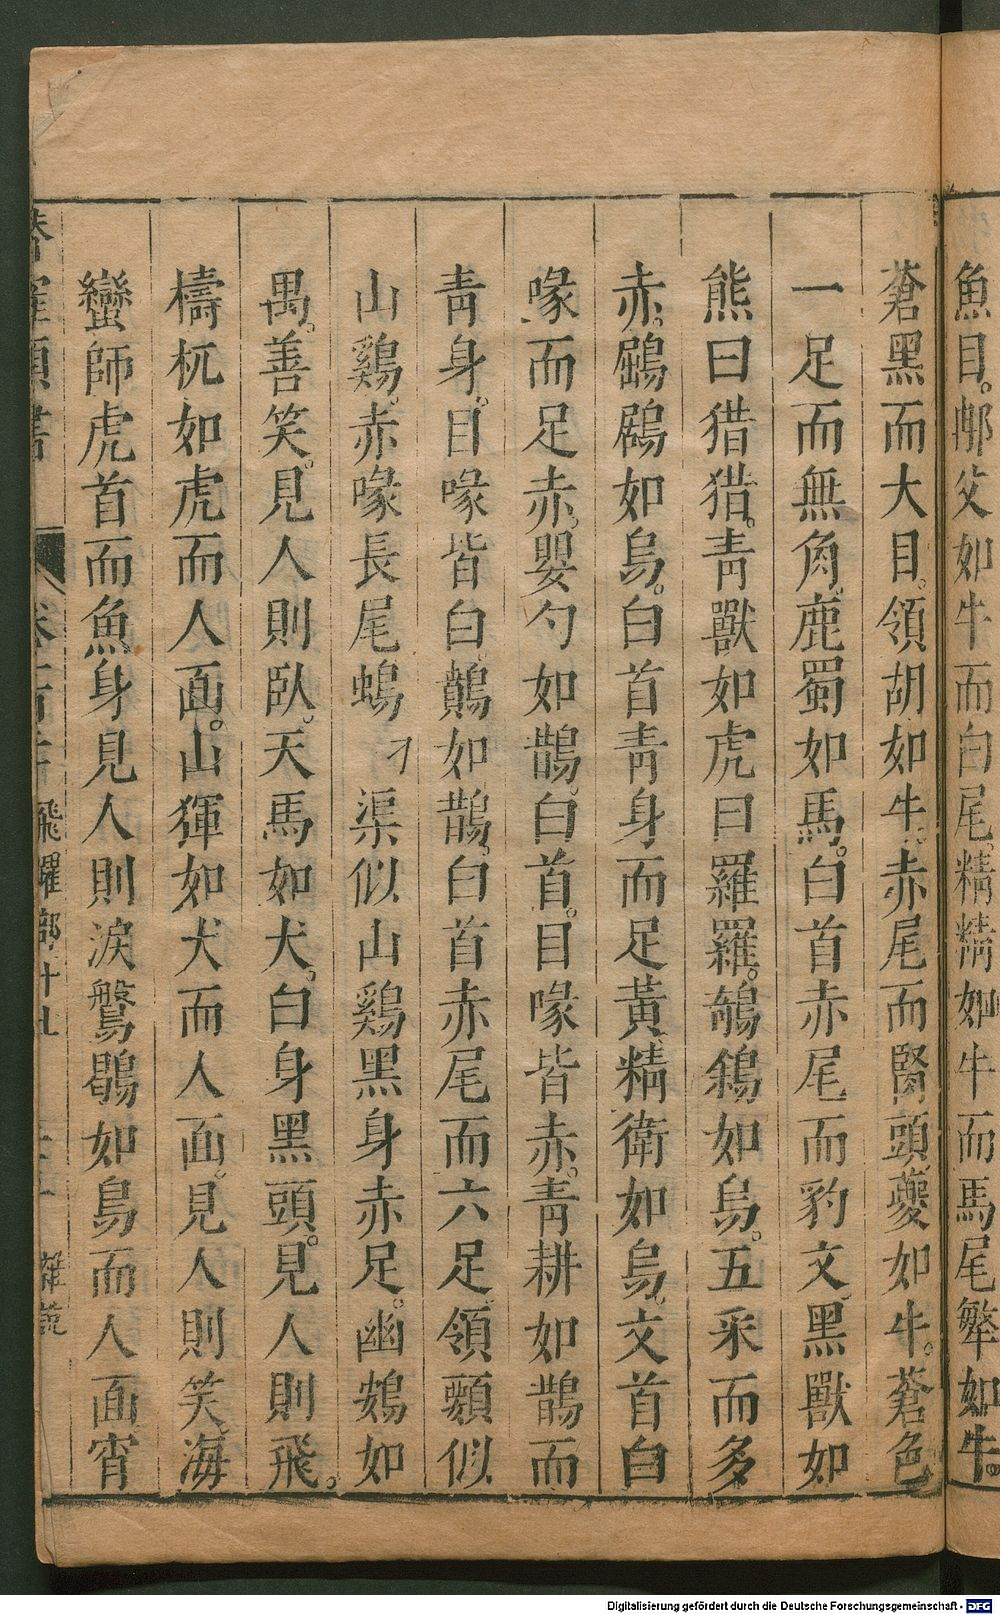 魚目。䣙父如牛而白尾。精精如牛而馬尾。犛如牛。
蒼黑而大目。領胡如牛。赤尾而腎頭。夔如牛。蒼色
一足而無角。鹿蜀如馬。白首赤尾而豹文。黑獸如
熊曰猎猎。青獸如虎曰羅羅。鵸鵌如烏。五采而多
赤。鶌鶋如烏。白首青身而足黃。精衛如烏。文首白
喙而足赤。嬰勺如鵲。白首。目喙皆赤。青耕如鵲而
青身。目喙皆白。鷏如鵲。白首赤尾而六足。領頪似
山鷄。赤喙長尾䲧刁渠似山鷄黑身赤足。幽鴳如
禺。善笑。見人則臥。天馬如犬。白身黑頭。見人則飛。
檮杌如虎而人面。山㺝如犬而人面。見人則笑。海
蠻師虎首而魚身見人則淚鴛鶡如鳥而人面宵
飛躍部十九
雜說
Digitalisierung gefördert durch die Deutsche Forschungsgemeinschaft - DFG